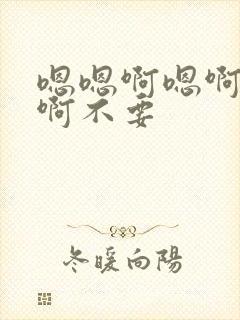 嗯嗯啊嗯啊
啊不要
冬暖向陽